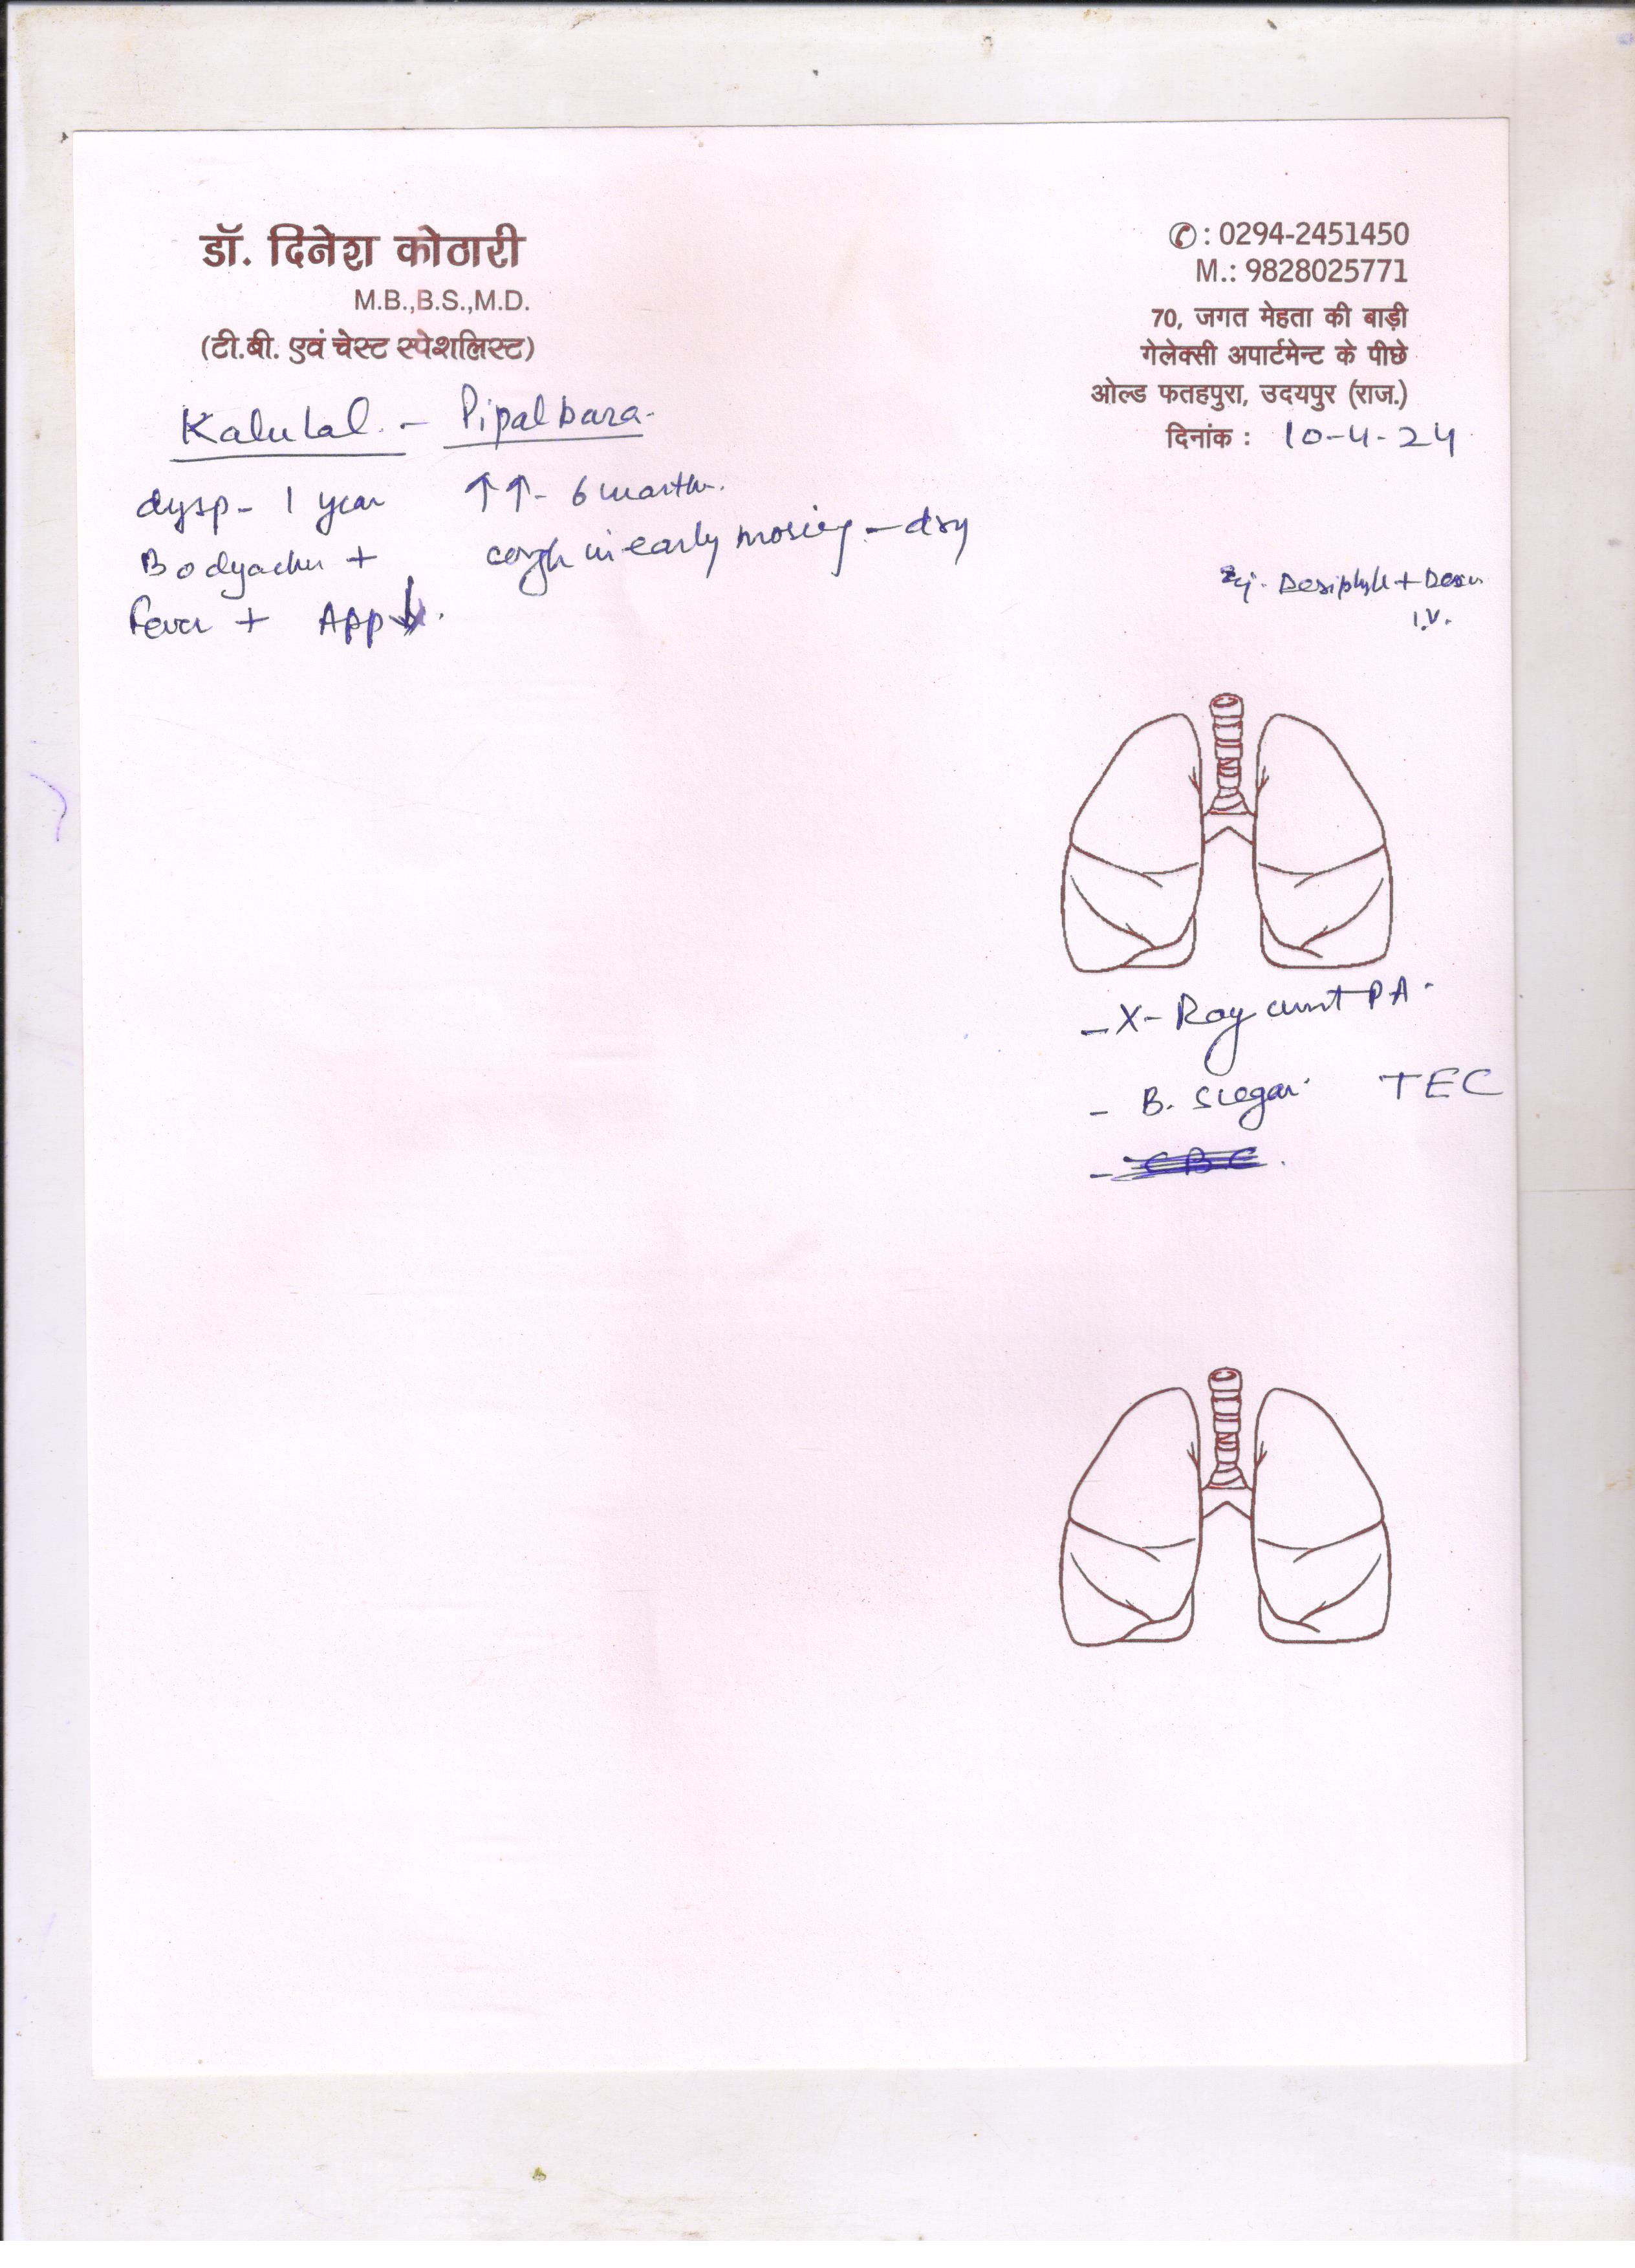 डॉ. दिनेश कोठारी
M.B.,B.S.,M.D.
(टी.बी. एवं चेस्ट स्पेशलिस्ट)
✆ : 0294-2451450
M.: 9828025771
70, जगत मेहता की बाड़ी
गेलेक्सी अपार्टमेन्ट के पीछे
ओल्ड फतहपुरा, उदयपुर (राज.)
दिनांक : 10-4-24
Kalulal. - Pipalbara.
dysp - 1 year ↑↑ - 6 month.
Bodyache + cough in early morning - dry
fever + App ↓.
Inj. Deriphyll +
I.V.
- X-Ray chest PA.
- B. Sugar. TEC
- CBC.